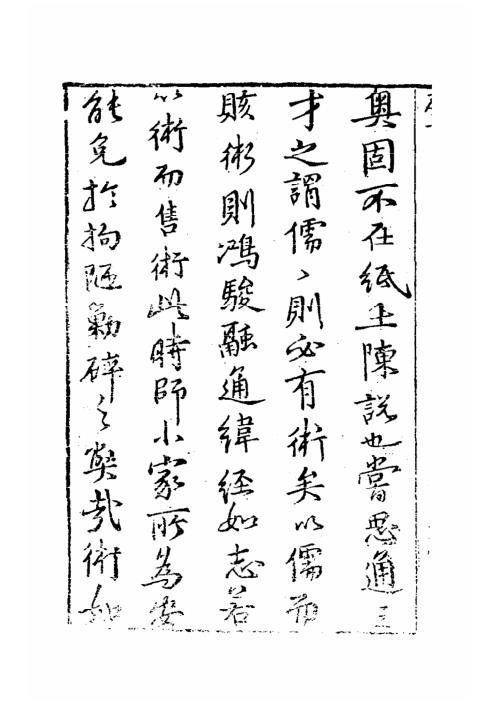 奥固不在紙上陳說也嘗思通三
才之謂儒〻則必有術矣以儒
賅術則鴻駿融通緯經如志若
以術而售術此時師小家所為安
能免於拘陋勦碎之獘哉術